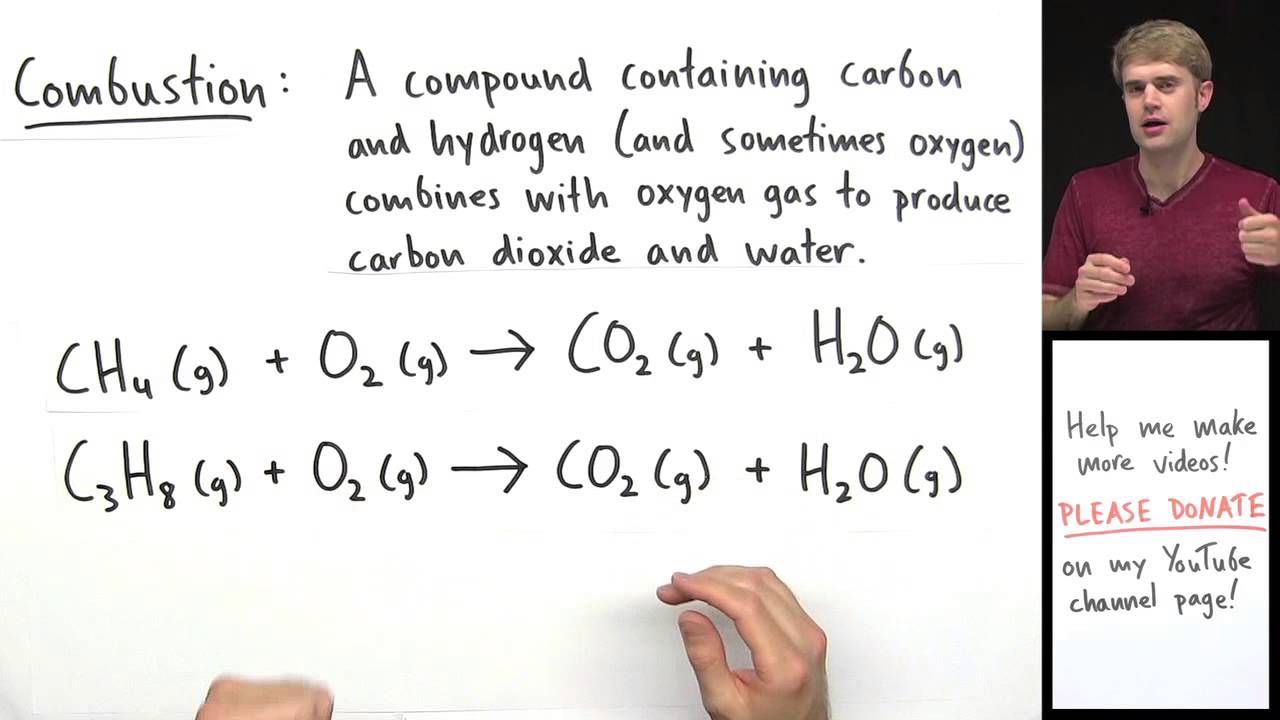 Combustion: A compound containing carbon
and hydrogen (and sometimes oxygen)
combines with oxygen gas to produce
carbon dioxide and water.
CH₄ (g) + O₂ (g) → CO₂ (g) + H₂O (g)
C₃H₈ (g) + O₂ (g) → CO₂ (g) + H₂O (g)
Help me make
more videos!
PLEASE DONATE
on my YouTube
channel page!